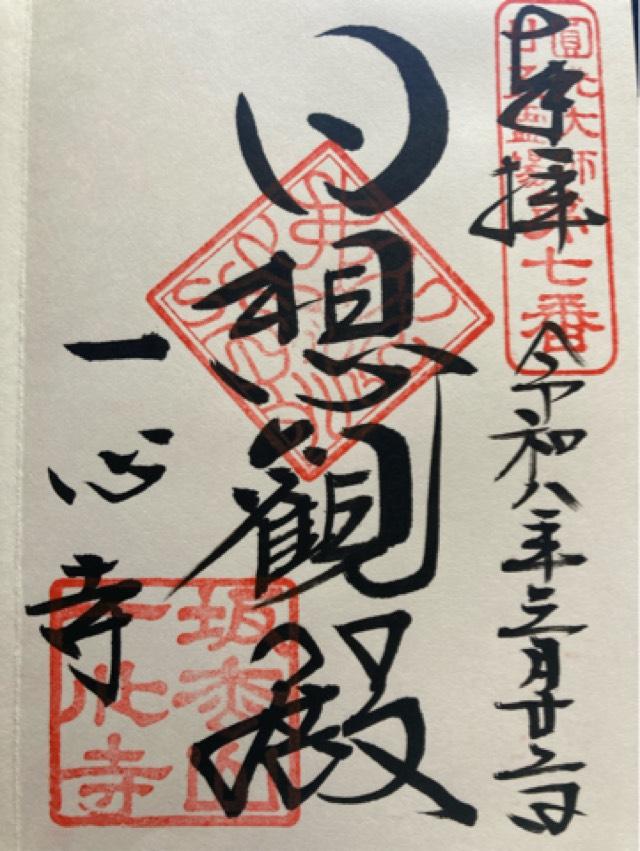 奉拝
圓光大師
廿五霊場第七番
令和八年三月廿二日
日想観殿
一心寺
坂松山
一心寺